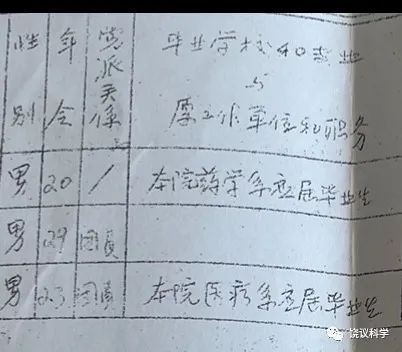 性别 年令 党派关系 毕业学校和专业
与
原工作单位和职务
男 20 / 本院药学系应届毕业生
男 29 团员
男 23 团员 本院医疗系应届毕业生
饶议科学